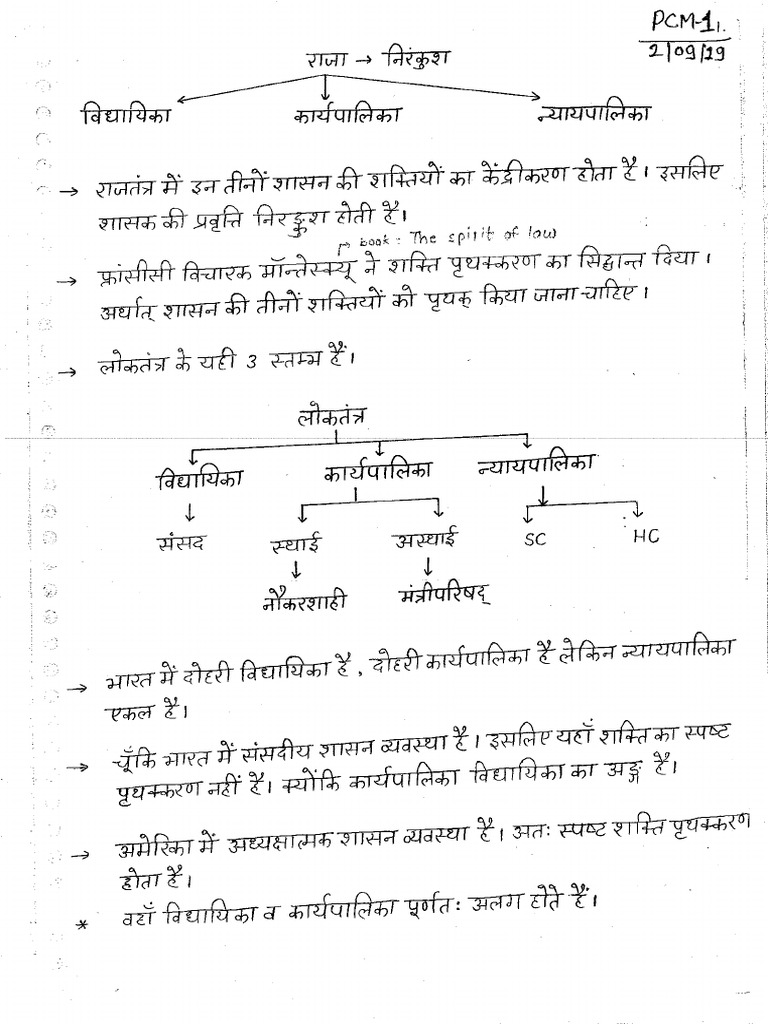 PCM-1.
2/09/19
राजा → निरंकुश
विद्यायिका कार्यपालिका न्यायपालिका
→ राजतंत्र में इन तीनों शासन की शक्तियों का केंद्रीकरण होता है। इसलिए
शासक की प्रवृत्ति निरङ्कुश होती है।
book : The spirit of law
→ फ्रांसीसी विचारक मॉन्तेस्क्यू ने शक्ति पृथक्करण का सिद्धान्त दिया।
अर्थात् शासन की तीनों शक्तियों को पृथक् किया जाना चाहिए।
→ लोकतंत्र के यही 3 स्तम्भ हैं।
लोकतंत्र
विद्यायिका कार्यपालिका न्यायपालिका
संसद स्थाई अस्थाई SC HC
नौकरशाही मंत्रीपरिषद्
→ भारत में दोहरी विद्यायिका है, दोहरी कार्यपालिका है लेकिन न्यायपालिका
एकल है।
→ चूँकि भारत में संसदीय शासन व्यवस्था है। इसलिए यहाँ शक्ति का स्पष्ट
पृथक्करण नहीं है। क्योंकि कार्यपालिका विद्यायिका का अङ्ग है।
→ अमेरिका में अध्यक्षात्मक शासन व्यवस्था है। अतः स्पष्ट शक्ति पृथक्करण
होता है।
* वहाँ विद्यायिका व कार्यपालिका पूर्णतः अलग होते हैं।